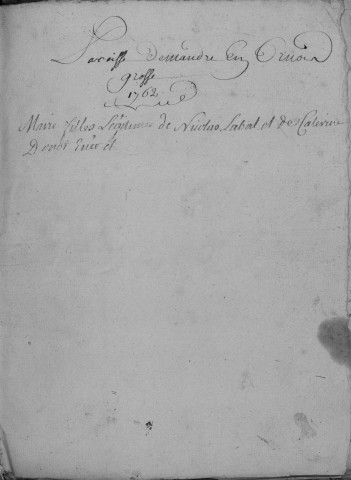 Paroisse Demandre En
grosse
1762
Marie filles Legitimes de Nicolas Labat et de Caterine
Donet née et